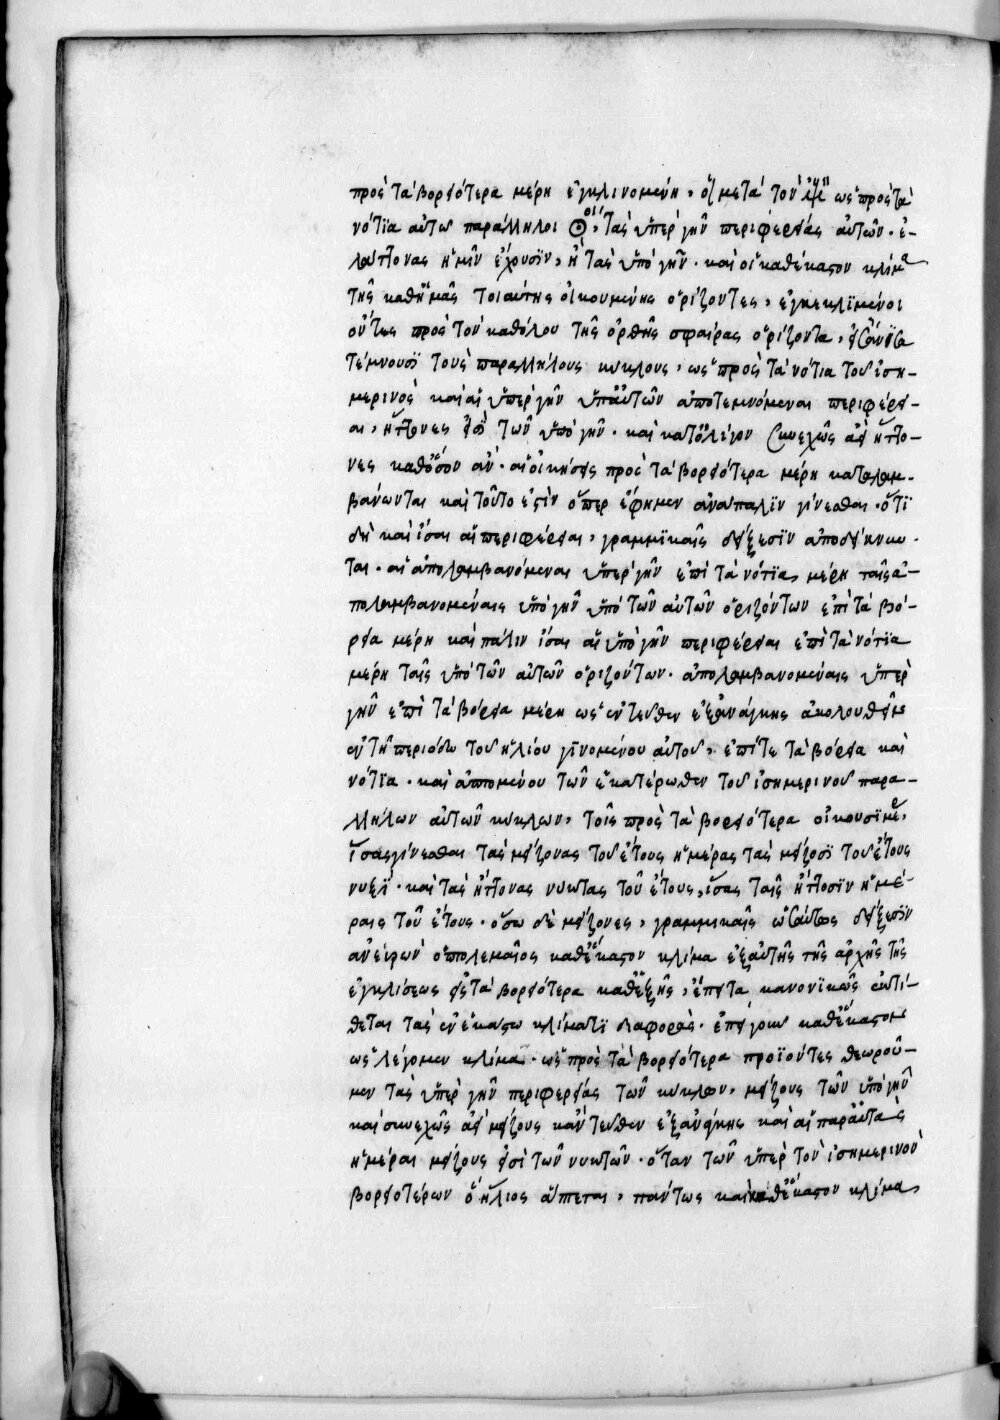 πρὸς τὰ βορειότερα μέρη ἐγκλινομένη, οἱ μετὰ τὸν ὡς πρὸς τὰ
νότϊα αὐτῶ παράλληλοι τὰς ὑπὲρ γῆν περιφερείας αὐτῶν. ἐ-
λάττονας ἡμῖν ἔχουσϊν, ἢ τὰς ὑπὸ γῆν. καὶ οἱ καθέκαστον κλίμα
τῆς καθημᾶς τοιαύτης οἰκουμένης ὁρίζοντες, ἐγκεκλϊμένοι
ὄντες πρὸς τὸν καθόλου τῆς ὀρθῆς σφαίρας ὁρίζοντα,
τέμνουσϊ τοὺς παραλλήλους κύκλους, ὡς πρὸς τὰ νότια τοῦ ἰση-
μερινὸς καὶ αἱ ὑπὲρ γῆν ὑπαὐτῶν ἀποτεμνόμεναι περιφέρει-
αι, ἥττονες εἰσὶ τῶν ὑπὸ γῆν. καὶ κατολίγον συνεχῶς ἀεὶ ἥττο-
νες καθόσον ἂν. αἱ οἰκήσεις πρὸς τὰ βορειότερα μέρη καταλαμ-
βάνωνται καὶ τοῦτο ἐστὶν ὅπερ ἔφημεν ἀνάπαλϊν γίνεσθαι. ὅτϊ
δὲ καὶ ἴσαι αἱ περιφέρειαι, γραμμϊκαῖς δείξεσϊν ἀποδείκνυν-
ται. αἱ ἀπολαμβανόμεναι ὑπὲρ γῆν ἐπὶ τὰ νότϊα, μέρη ταῖς ἀ-
πολαμβανομέναις ὑπὸ γῆν ὑπὸ τῶν αὐτῶν ὁριζόντων ἐπὶ τὰ βό-
ρεια μέρη καὶ πάλιν ἴσαι αἱ ὑπὸ γῆν περιφέρειαι ἐπὶ τὰ νότϊα
μέρη ταῖς ὑπὸ τῶν αὐτῶν ὁριζόντων. ἀπολαμβανομέναις ὑπὲρ
γῆν ἐπὶ τὰ βόρεια μέρη ὡς ἐντεῦθεν ἐξανάγκης ἀκολουθεῖν
ἐν τῆ περιόδω τοῦ ἡλίου γϊνομένου αὐτοῦ, ἐπί τε τὰ βόρεια καὶ
νότϊα. καὶ ἁπτομένου τῶν ἑκατέρωθεν τοῦ ἰσημερινοῦ παρα-
λλήλων αὐτῶν κύκλων, τοῖς πρὸς τὰ βορειότερα οἰκοῦσϊ
ἴσας γίνεσθαι τὰς μείζονας τοῦ ἔτους ἡμέρας τὰς μείζοσϊ τοῦ ἔτους
νυξὶ. καὶ τὰς ἥττονας νύκτας τοῦ ἔτους, ἴσας ταῖς ἥττοσϊν ἡμέ-
ραις τοῦ ἔτους. ὅσω δὲ μείζονες, γραμμικαῖς ὡσαύτως δείξεσϊν
ἀνεῖρων ὁ πτολεμαῖος καθέκαστον κλίμα ἐξαὐτῆς τῆς ἀρχῆς τῆς
ἐγκλίσεως εἰς τὰ βορειότερα καθεξῆς, ἔπειτα κανονϊκῶς ἐντί-
θεται τὰς ἐν ἑκάστω κλίματϊ διαφορὰς. ἐπεὶ γοῦν καθέκαστον
ὡς λέγομεν κλίμα. ὡς πρὸς τὰ βορειότερα προϊόντες θεωροῦ-
μεν τὰς ὑπὲρ γῆν περιφερείας τῶν κύκλων, μείζους τῶν ὑπὸ γῆν
καὶ συνεχῶς ἀεὶ μείζους κἀντεῦθεν ἐξανάγκης καὶ αἱ παραὐτὰς
ἡμέραι μείζους εἰσὶ τῶν νυκτῶν. ὅταν τῶν ὑπὲρ τὸν ἰσημερινὸν
βορειοτέρων ὁ ἥλιος ἅπτεται, πάντως καὶ καθέκαστον κλίμα,